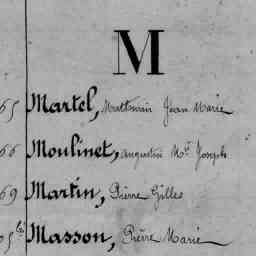 M
65 Martel, Mathurin Jean Marie
66 Moulinet, Augustin Mie Joseph
69 Martin, Pierre Gilles
Masson, Pierre Marie